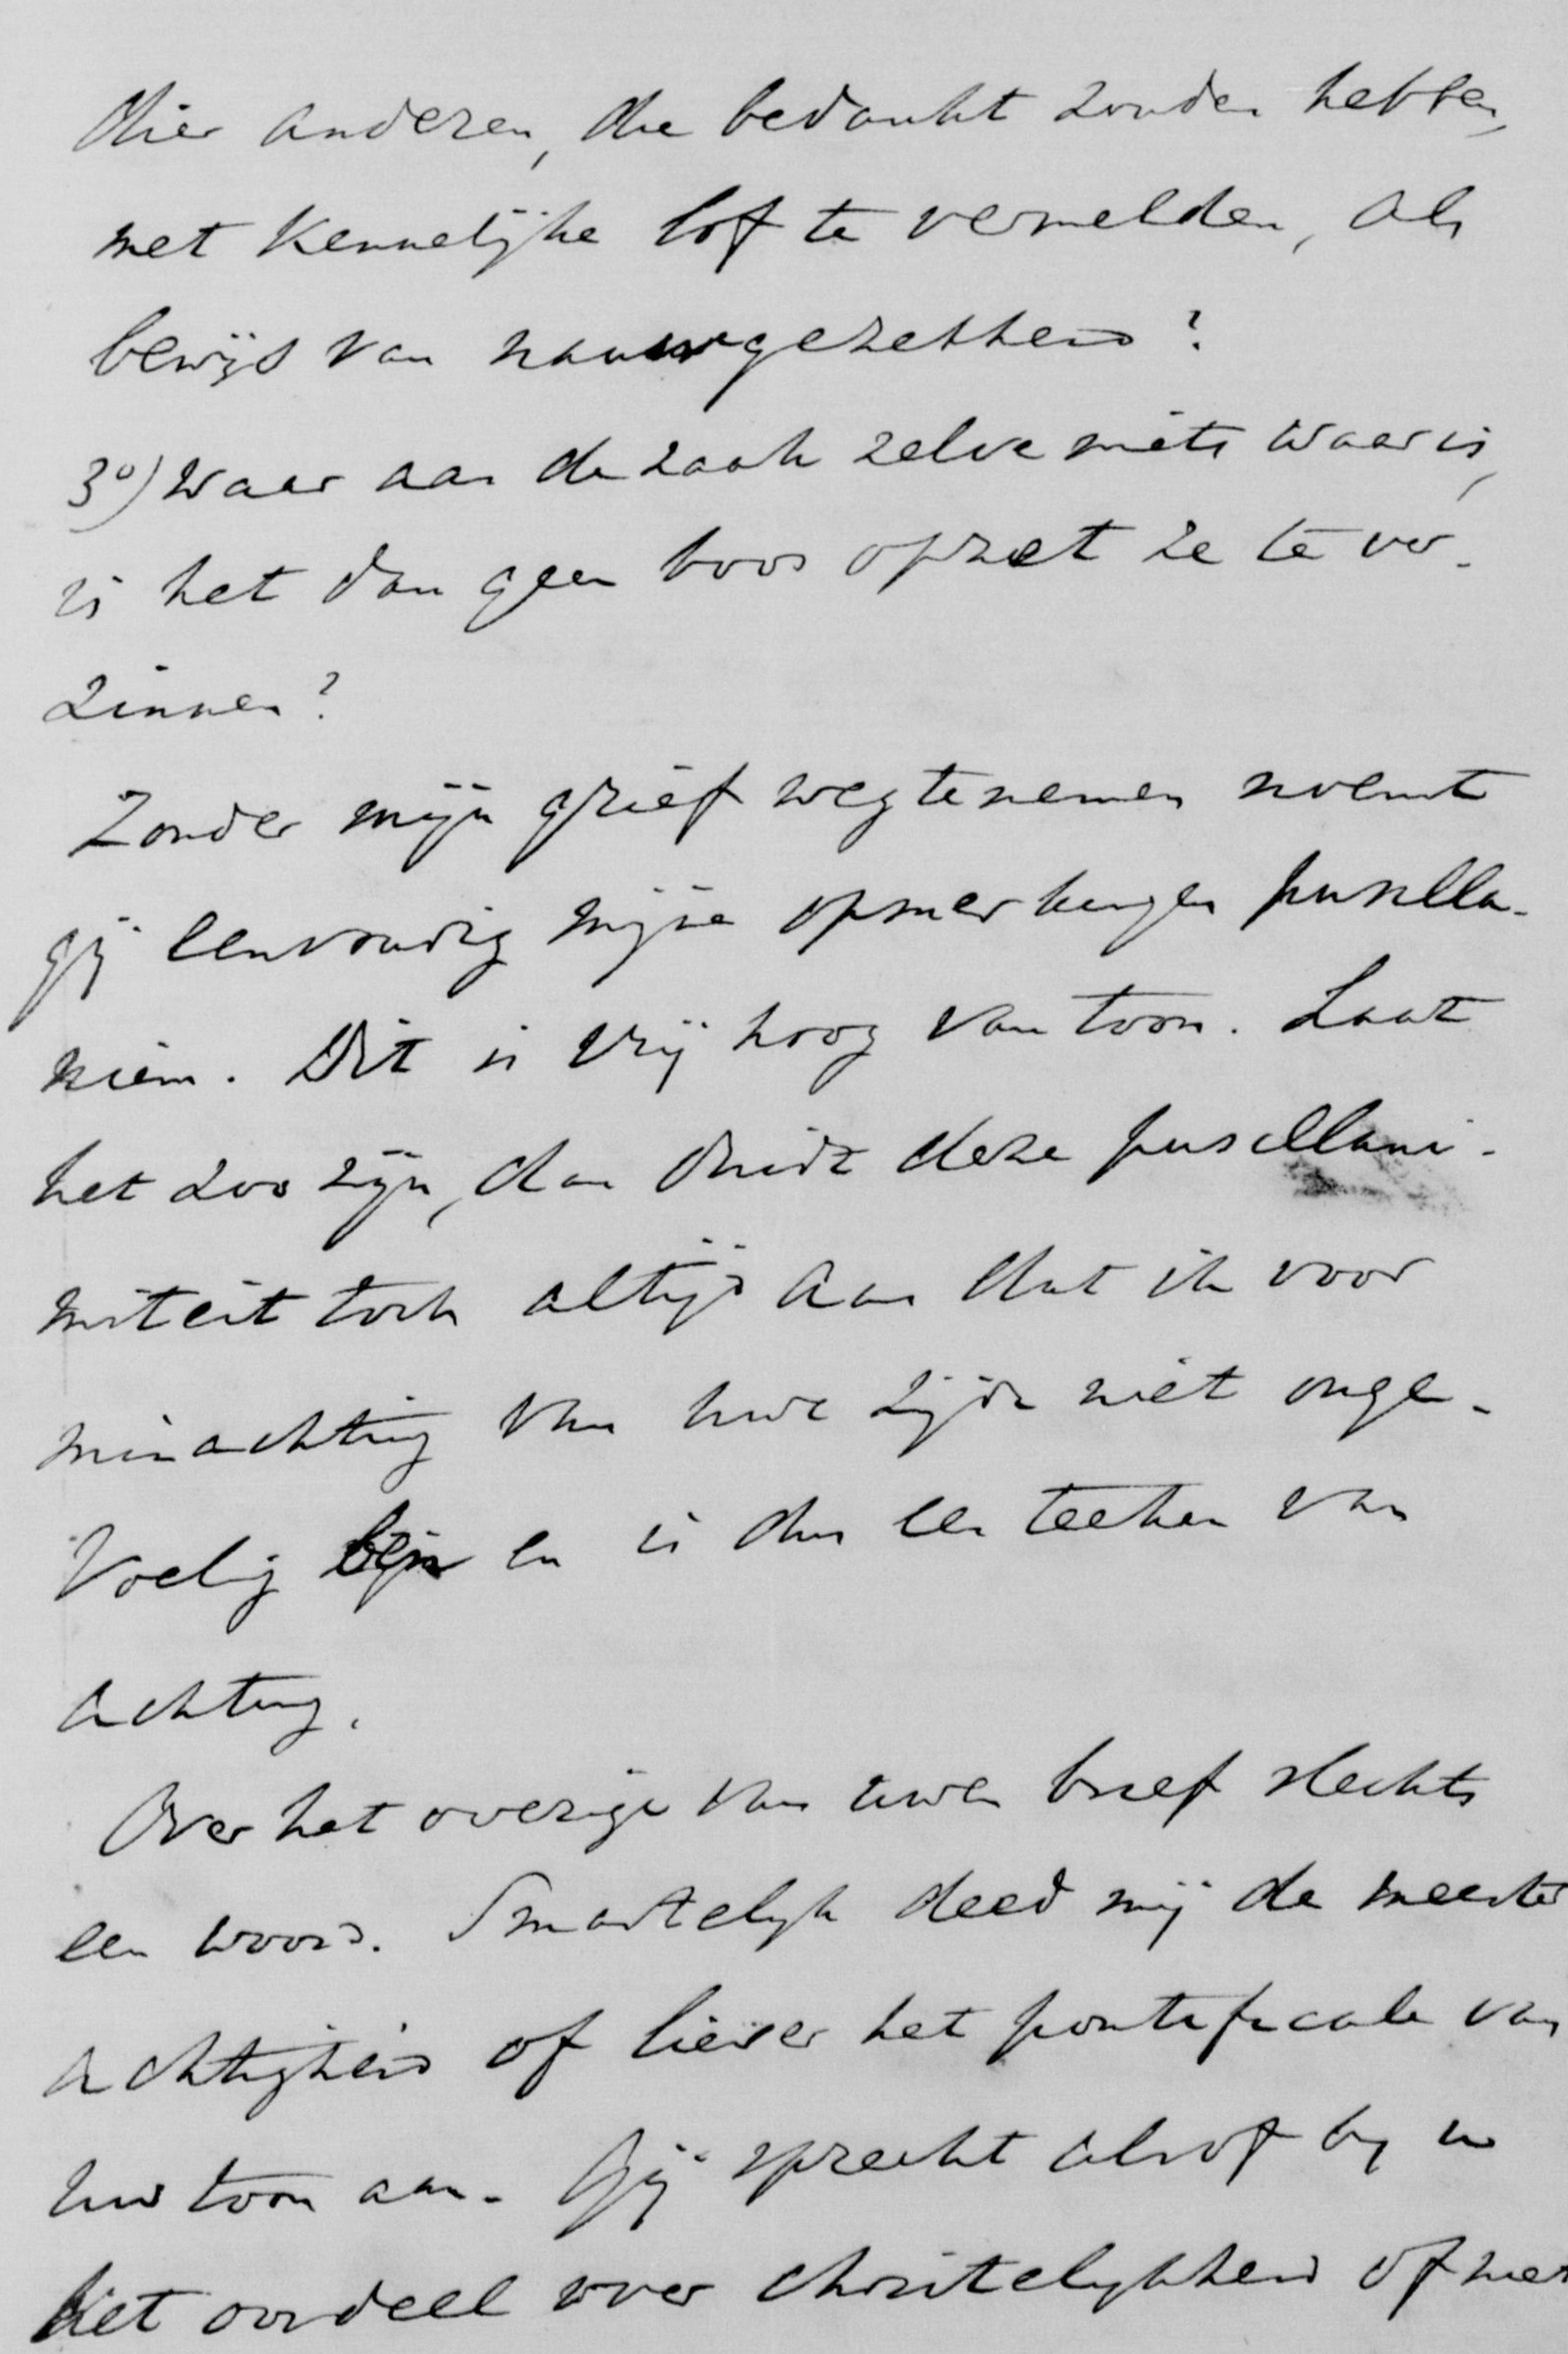 drie anderen, die bedankt zouden hebben,
met kennelijke lof te vermelden, als
bewijs van nauwgezetheid?
3º) Waar aan de zaak zelve niets waar is,
is het dan geen boos opzet ze te ver-
zinnen?
Zonder mijn grief weg te nemen noemt
gij eenvoudig mijne opmerkingen pusilla-
niem. Dit is vrij hoog van toon. Laat
het zoo zijn, dan duidt deze pusillani-
miteit toch altijd aan dat ik voor
minachting van uwe zijde niet onge-
voelig ben en is dus een teeken van
achting.
Over het overige van uwen brief slechts
een woord. Smartelijk deed mij de meester
achtigheid of liever het pontificale van
uw toon aan. Gij spreekt alsof bij u
het oordeel over christelijkheid of niet